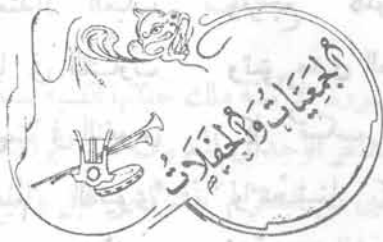 الجمعيَات وَالحَفلاتُ